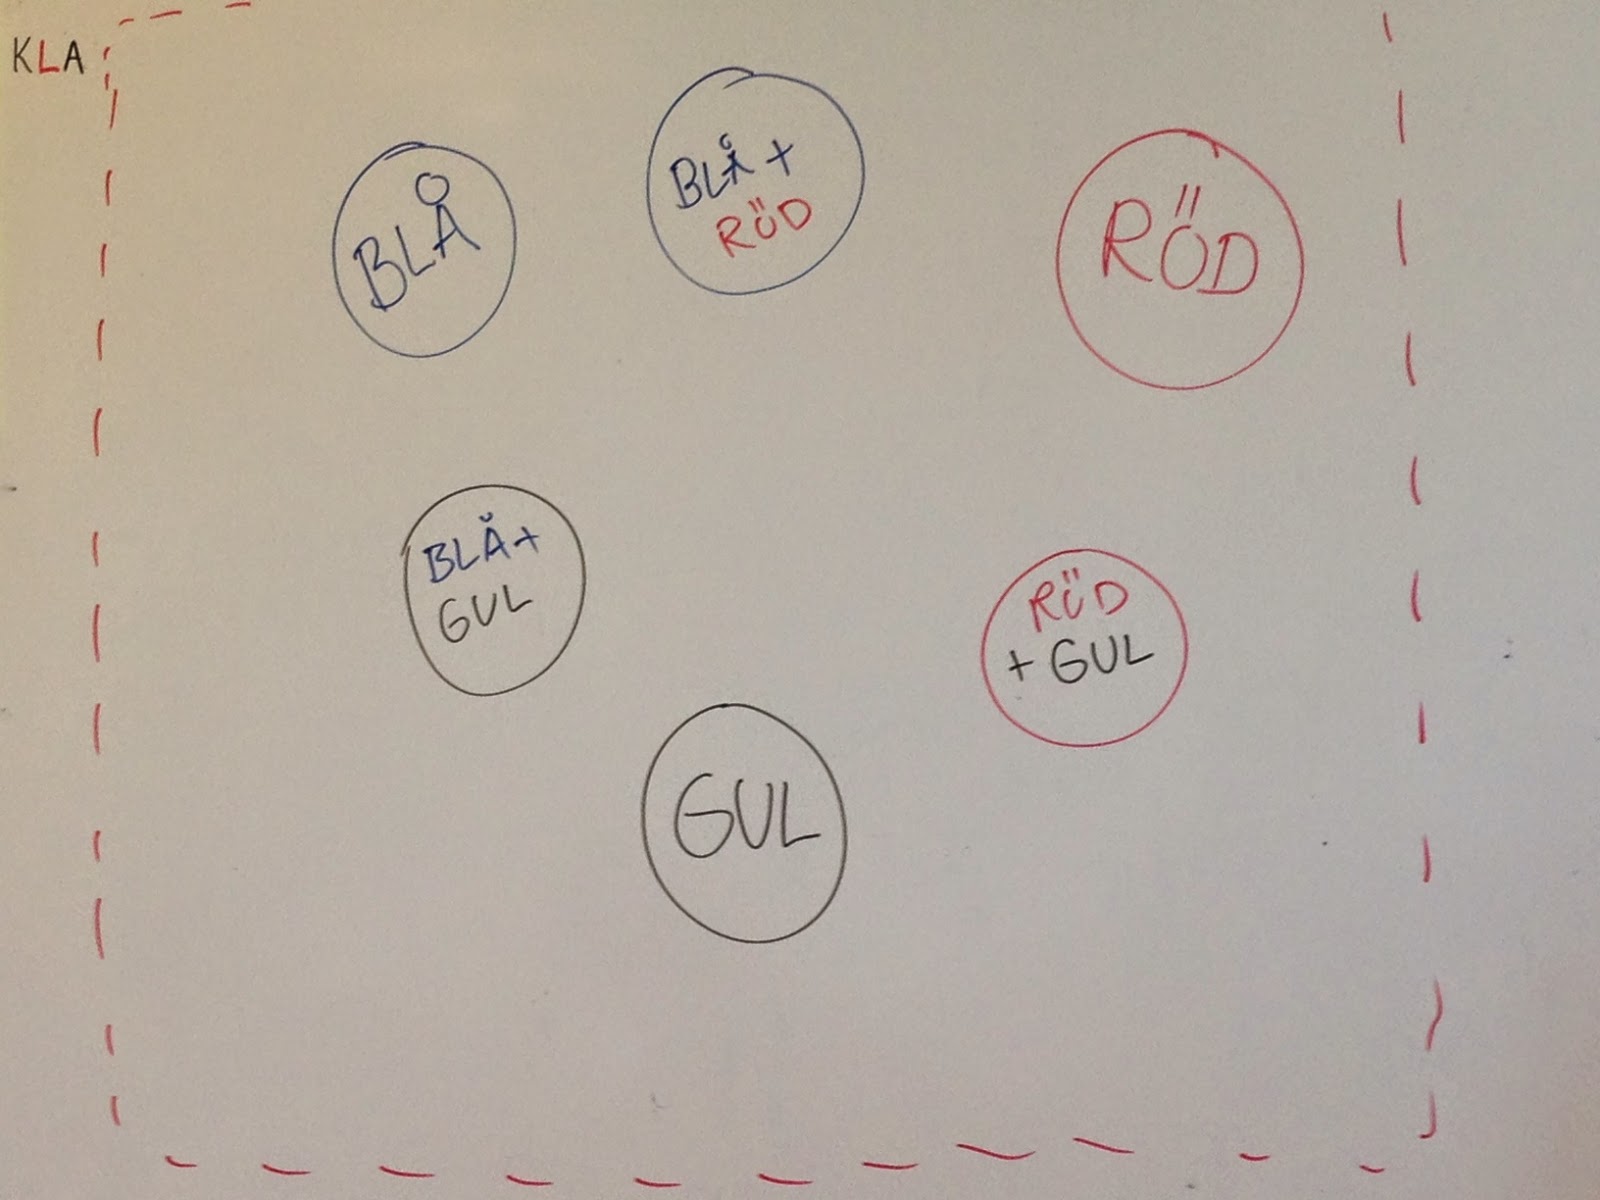 KLA
BLÅ
BLÅ +
RÖD
RÖD
BLÅ+
GUL
RÖD
+ GUL
GUL